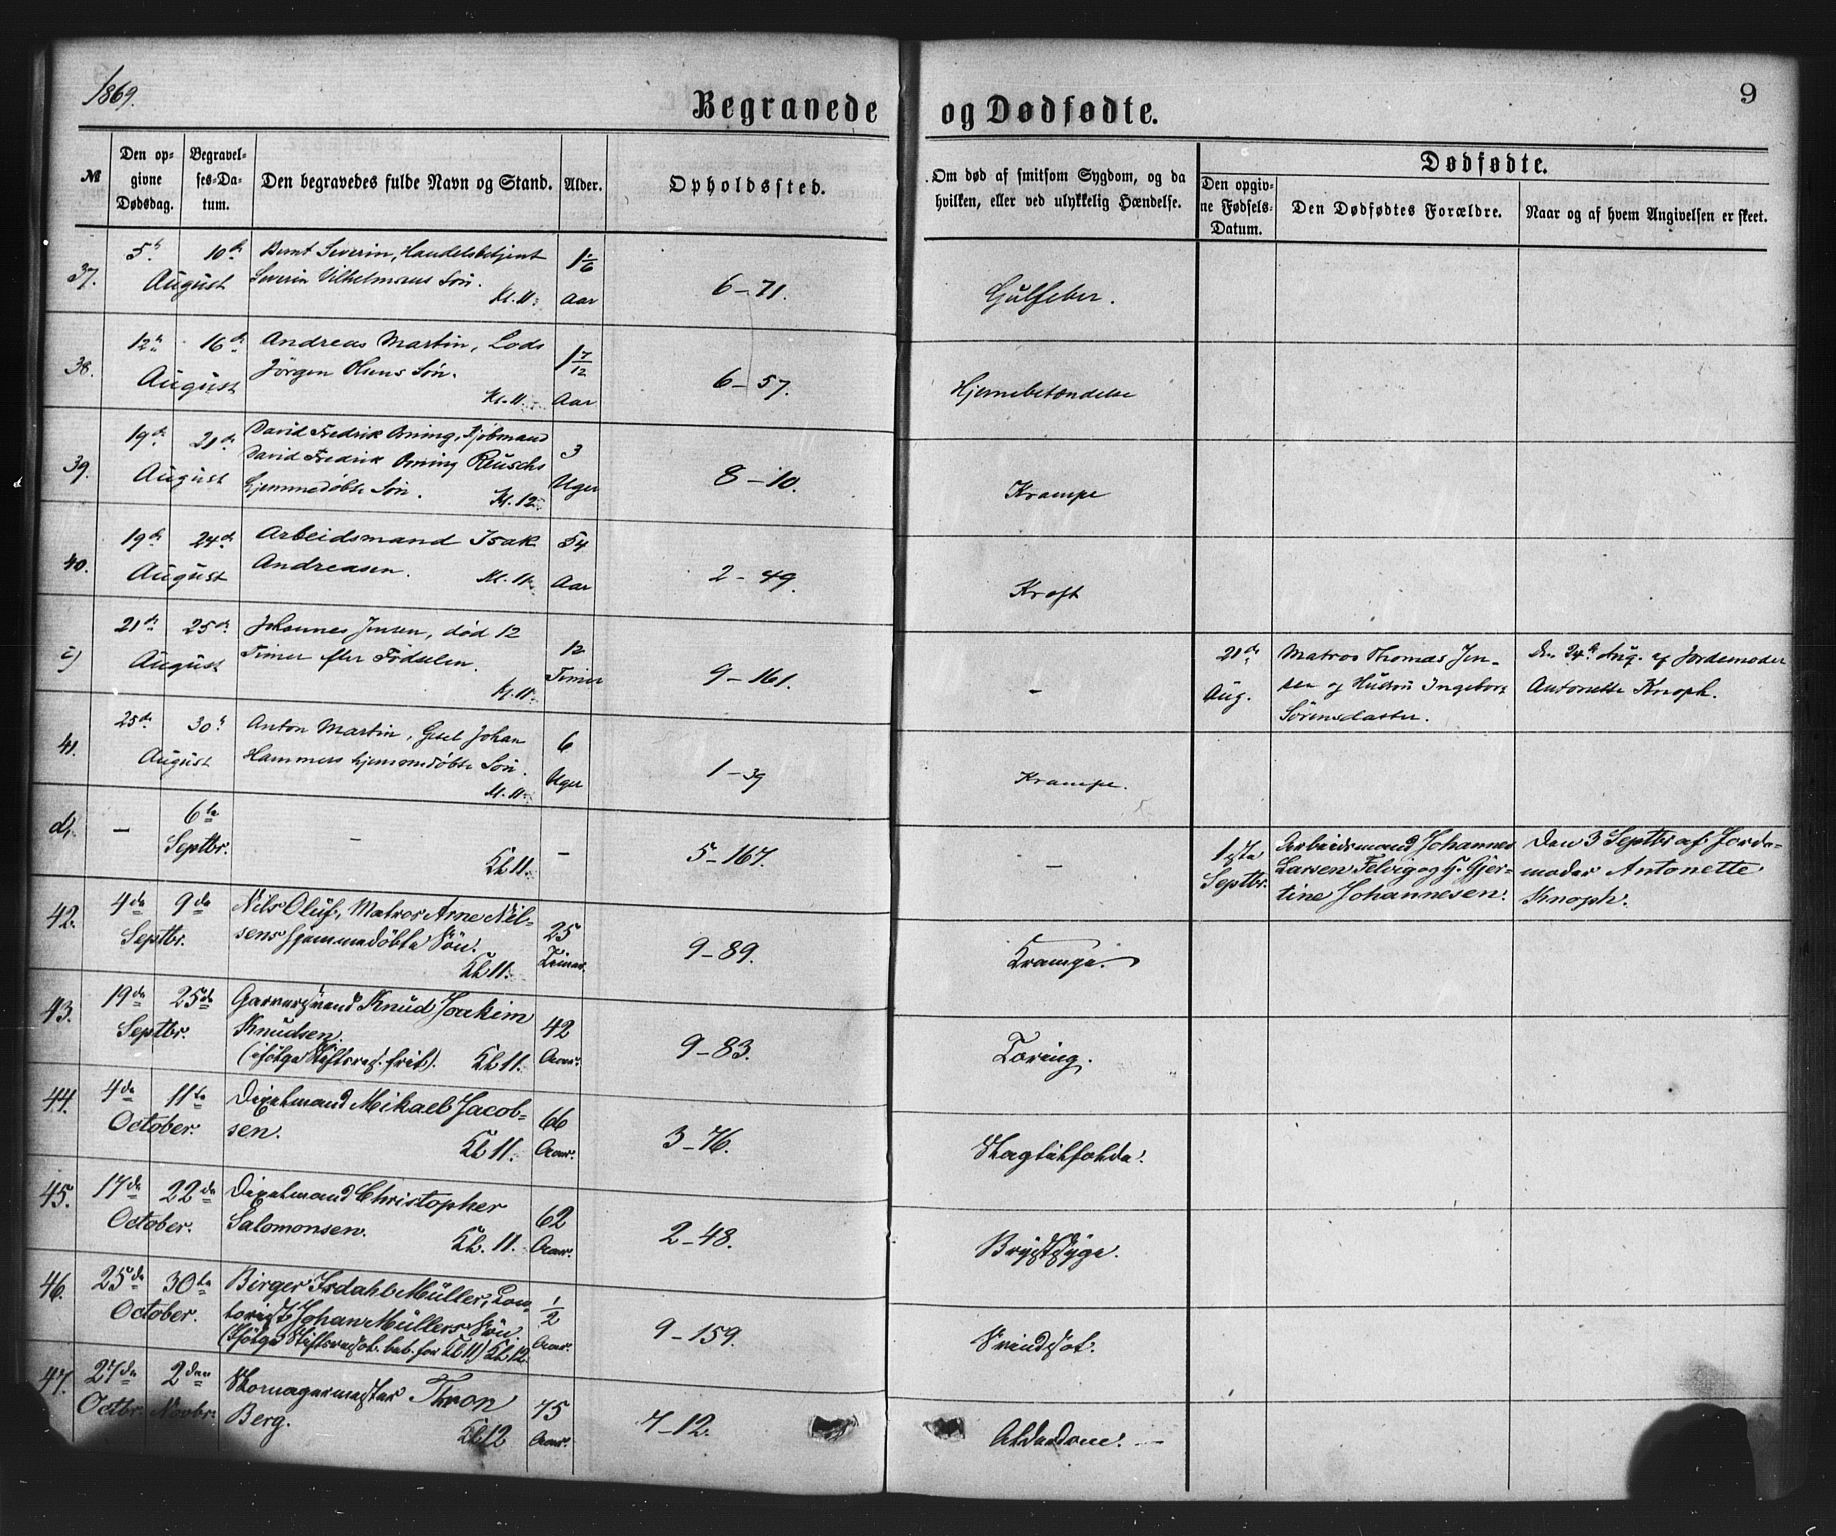 1869.
9
Begravede og Dødfødte.
№
Den opgivne Dødsdag.
Begravelses-Datum.
Den begravedes fulde Navn og Stand.
Alder.
Opholdssted.
Om død af smitsom Sygdom, og da hvilken, eller ved ulykkelig Hændelse.
Dødfødte.
Den opgivne Fødsels-Datum.
Den Dødfødtes Forældre.
Naar og af hvem Angivelsen er skeet.
37. 5te 10de Bernt Severin, Handelsbetjent 1 1/6
August Severin Vilhelmsens Søn. Kl. 11. Aar 6–71. Gulfeber.
38. 12te 16de Andreas Martin, Lods 1 7/12
August Jörgen Olsens Søn. Kl. 11. Aar 6–57. Hjernebetændelse
39. 19de 21de David Fredrik Orning, Kjøbmand 3
August David Fredrik Orning Reuschs Uger 8–10. Krampe
hjemmedøbte Søn. Kl. 12.
40. 19de 24de Arbeidsmand Isak 54
August Andreasen. Kl. 11. Aar 2–49. Kræft
c) 21de 25de Johannes Jensen, død 12 12
August Timer efter Födselen. Timer 9–161. –
Kl. 11.
21de Aug.
Matros Thomas Jen-
sen og Hustru Ingeborg
Sörensdatter.
Den 24de Aug. af Jordemoder
Antonette Knoph.
41. 25de 30te Anton Martin, Gesel Johan 6
August Hammers hjemmedøbte Søn. Uger 1–39 Krampe.
Kl. 11.
d, – 6te Septbr. – Kl 11. – 5–167. –
1ste Septbr.
Arbeidsmand Johannes
Larsen Felvig og H. Gjer-
tine Johannesen.
Den 3 Septbr af Jorde-
moder Antonette
Knoph.
42. 4de 9de Nils Oluf, Matros Arne Niel- 25
Septbr. sens hjemmedøbte Søn. Timer. 9–89. Krampe.
Kl 11.
43. 19de 25de Garversvend Knud Joakim 42
Septbr. Knudsen. Aar. 9–83. Tæring.
(ifølge Stiftsres. frit). Kl 11.
44. 4de 11te Dixelmand Mikael Jacob- 66
October. sen. Kl 11. Aar. 3–76. Slagtilfælde.
45. 17de 22de Dixelmand Christopher 62
October. Salomonsen. Kl. 11. Aar. 2–48. Brystsyge.
46. 25de 30te Birger Isdahl Müller, Kon- 1/2
October. torist Johan Müllers Søn. Aar. 9–159. Svindsot.
Kl 12.
47. 27de 2den Skomagermester Thron 75
Octbr. Novbr. Berg. Kl 12 Aar. 7–12. Alderdom. –